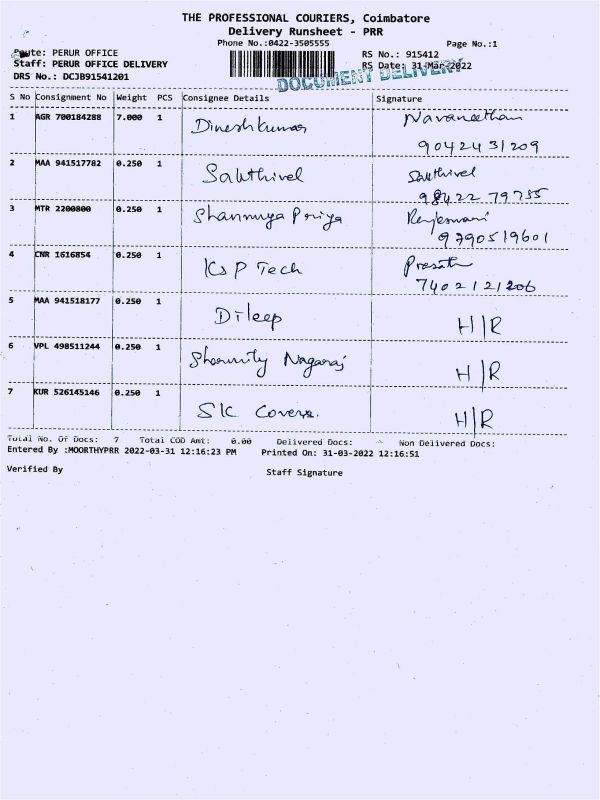 THE PROFESSIONAL COURIERS, Coimbatore
Delivery Runsheet - PRR
Phone No.:0422-3505555 Page No.:1
Route: PERUR OFFICE RS No.: 915412
Staff: PERUR OFFICE DELIVERY RS Date: 31-Mar-2022
DOCUMENT DELIVERY
DRS No.: DCJB91541201
S No Consignment No Weight PCS Consignee Details Signature
1 AGR 700184288 7.000 1 Dineshkumar Navaneethan
9042431209
2 MAA 941517782 0.250 1 Sakthivel Sakthivel
98422 79755
3 MTR 2200800 0.250 1 Shanmuga Priya Rajeswari
9790519601
4 CNR 1616854 0.250 1 KSP Tech Prasath
7402121206
5 MAA 941518177 0.250 1 Dileep H/R
6 VPL 498511244 0.250 1 Nagaraj H/R
7 KUR 526145146 0.250 1 SK Covers. H/R
Total No. Of Docs: 7 Total COD Amt: 0.00 Delivered Docs: Non Delivered Docs:
Entered By :MOORTHYPRR 2022-03-31 12:16:23 PM Printed On: 31-03-2022 12:16:51
Verified By Staff Signature